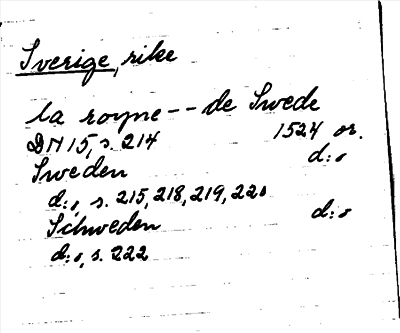 Sverige, rike
la royne -- de Swede
DN 15, s. 214 1524 or.
Sweden d:o
d:o, s. 215, 218, 219, 220
Schweden d:o
d:o, s. 222